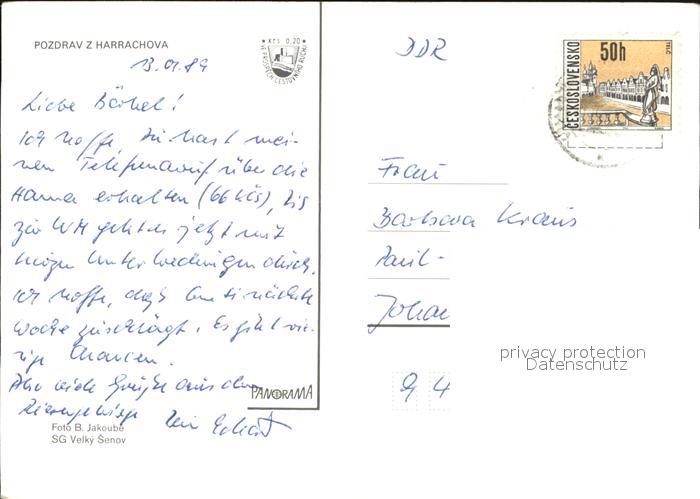 POZDRAV Z HARRACHOVA
Kčs 0,20
VE PROSPĚCH CESTOVNÍHO RUCHU
13.01.89
Liebe Bärbel!
Ich hoffe, Du hast mei-
nen Telefonanruf über die
Hanna erhalten (66 Kčs), bis
zur WM geht es jetzt mit
Unterbrechungen durch.
Ich hoffe, daß
Woche zuschlägt. Es gibt
Chancen.
Also viele Grüße aus dem
Riesengebirge Dein Eckart
PANORAMA
Foto B. Jakoubě
SG Velký Šenov
DDR
ČESKOSLOVENSKO
50h
TELČ
Frau
Barbara Kraus
Paul-
Johan
94
privacy protection
Datenschutz